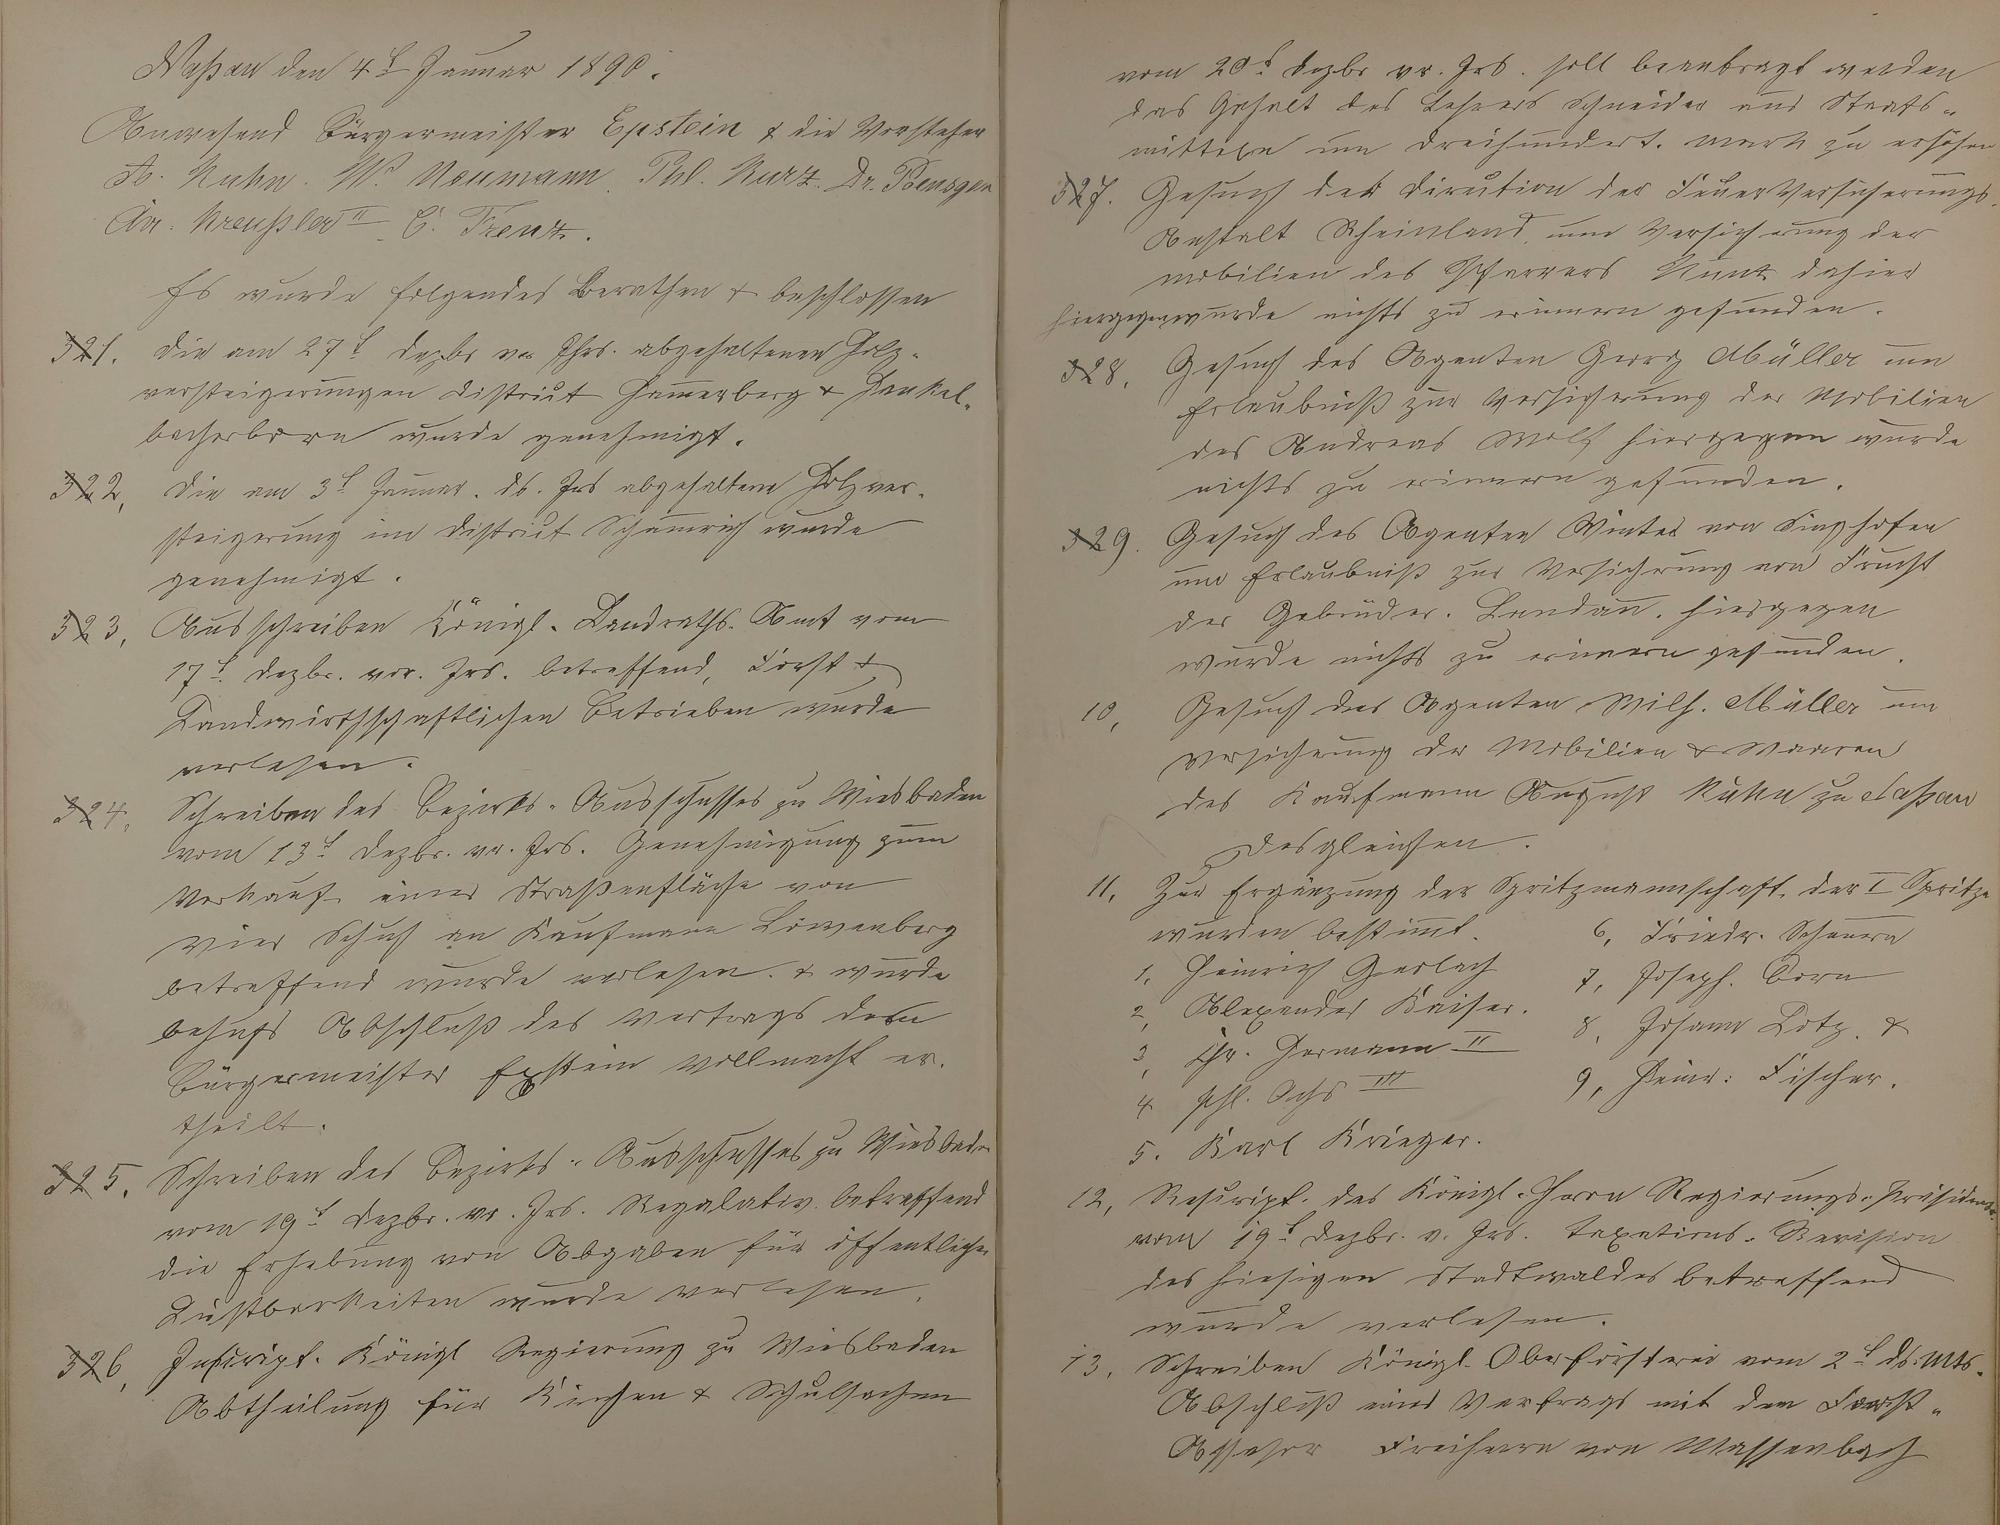 Naßau den 4t Januar 1890.
Anwesend Bürgermeister Epstein & die Vorsteher
A. Kuhn. W. Neumann. Phl. Kurz. Dr. Poensgen
Chr. Kreußler II C. Trenz.
Es wurde folgendes Berathen & beschlossen
321. Die am 27t Dezbr vor Jhrs. abgehaltenen Holz-
versteigerungen District Hammerberg & Henkel-
bacherborn wurde genehmigt.
322, Die am 3t Januar. ds. Jrs abgehaltene Holzver-
steigerung im District Schimmrich wurde
genehmigt.
323, Ausschreiben Königl. Landraths-Amt vom
17t. Dezbr. vor. Jrs. betreffend, Forst &
Landwirthschaftlichen Betrieben wurde
verlesen.
324, Schreiben des Bezirks-Ausschusses zu Wiesbaden
vom 13t Dezbr. vr. Jrs. Genehmigung zum
Verkauf einer Straßenfläche von
vier Schuh an Kaufmann Löwenberg
betreffend wurde verlesen. & wurde
behufs Abschluß des Vertrags dem
Bürgermeister Epstein Vollmacht er-
theilt.
325. Schreiben des Bezirks-Ausschusses zu Wiesbaden
vom 19t Dezbr. vr. Jrs. Regulativ betreffend
die Erhebung von Abgaben für öffentliche
Lustbarkeiten wurde verlesen.
326, Rescript. Königl Regierung zu Wiesbaden
Abtheilung für Kirchen & Schulsachen
vom 20t Dezbr vr. Jrs. soll beantragt werden
das Gehalt des Lehrers Schneider aus Staats-
mitteln um dreihundert. Mark zu erhöhen
327. Gesuch der Direction der Feuerversicherungs-
Anstalt Rheinland, um Versicherung der
Mobilien des Pfarrers Kunz dahier
hiergegen wurde nichts zu erinnern gefunden.
328, Gesuch des Agenten Georg Müller um
Erlaubniß zur Versicherung der Mobilien
des Andreas Wolf hiergegen wurde
nichts zu erinnern gefunden.
329. Gesuch des Agenten Winter von Singhofen
um Erlaubniß zur Versicherung von Frucht
der Gebrüder. Landau. hiergegen
wurde nichts zu erinnern gefunden.
10, Gesuch des Agenten Wilh. Müller um
Versicherung der Mobilien & Waaren
des Kaufmann August Kuhn zu Naßau
Desgleichen.
11, Zur Ergänzung der Spritzmannschaft, der I Spritze
wurden bestimmt.
1, Heinrich Gerlach
2, Alexander Kaiser.
3, Chr. Hermann II
4 Phl. Ochs III
5. Karl Krieger.
6, Friedr. Scheuern
7, Joseph. Born
8, Johann Lotz. &
9, Heinr: Fischer.
12, Rescript. des Königl. Herrn Regierungs-Präsidenten
vom 19t Dezbr. v. Jrs. Taxations-Revision
des hiesigen Stadtwaldes betreffend
wurde verlesen.
13. Schreiben Königl. Oberförsterei vom 2t ds. Mts.
Abschluß eines Vertrags mit dem Forst-
Assesor Freiherrn von Massenbach